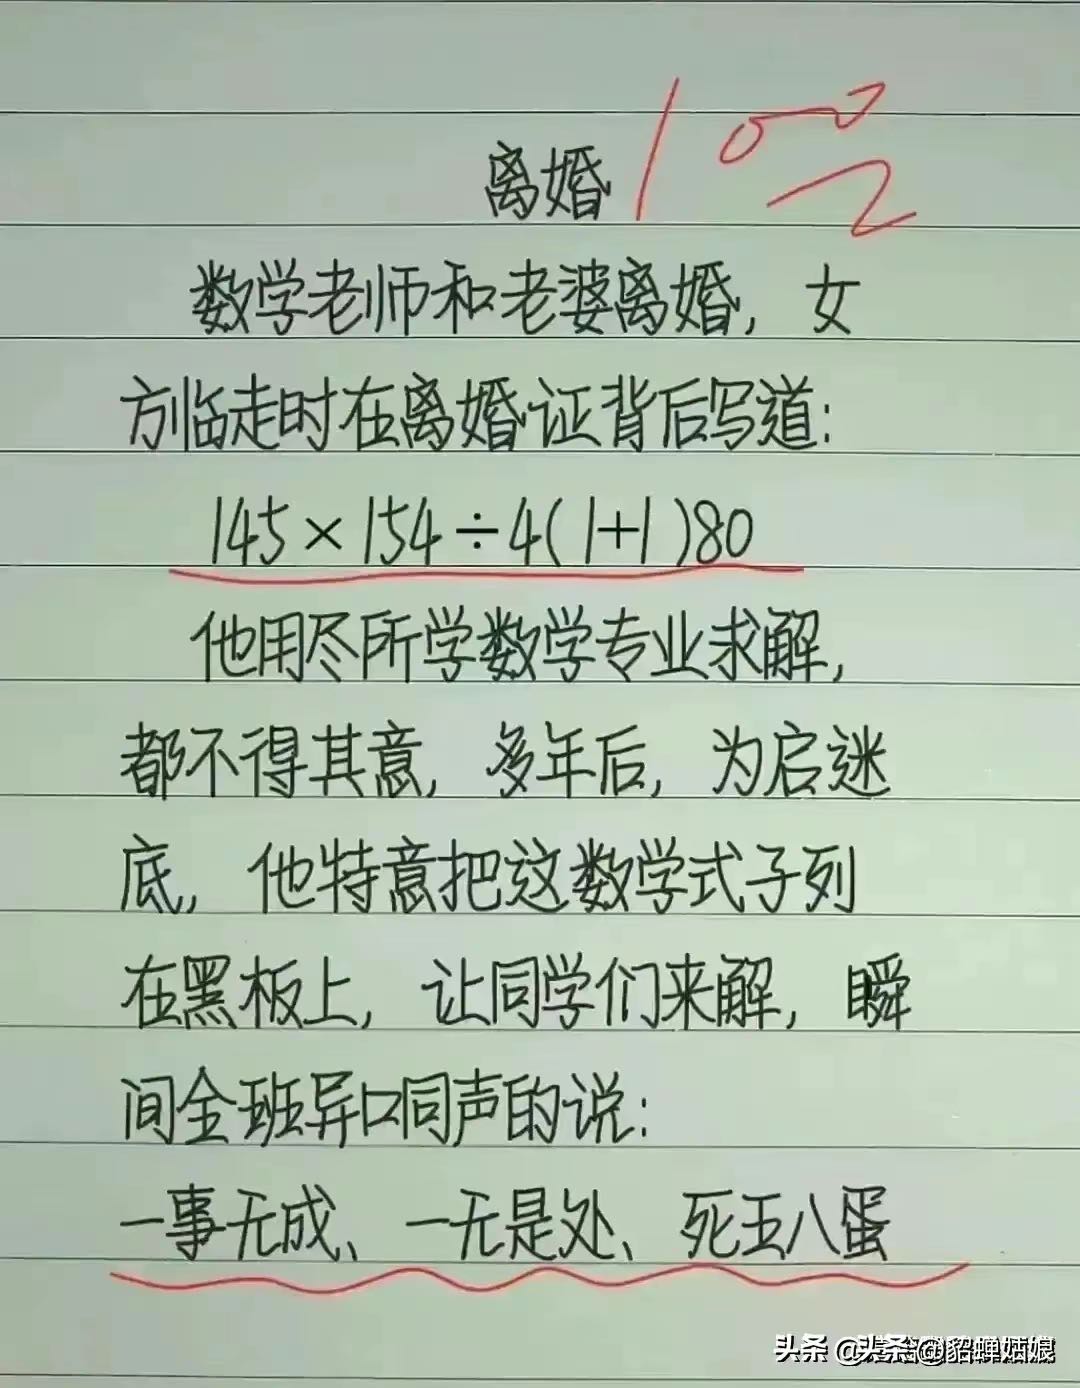 离婚 100
数学老师和老婆离婚，女
方临走时在离婚证背后写道：
145×154÷4(1+1)80
他用尽所学数学专业求解，
都不得其意，多年后，为启迷
底，他特意把这数学式子列
在黑板上，让同学们来解，瞬
间全班异口同声的说：
一事无成、一无是处、死王八蛋
头条@貂蝉姑娘